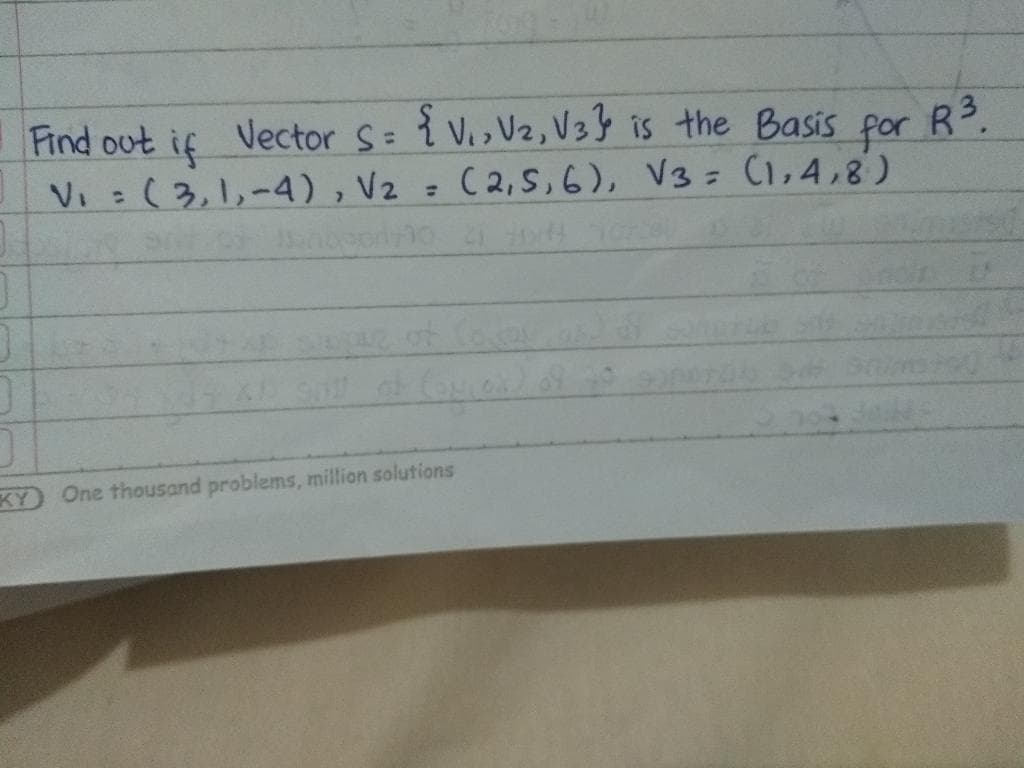 Find out if Vector S = { V1, V2, V3 } is the Basis for R³.
V1 = (3,1,-4), V2 = (2,5,6), V3 = (1,4,8)
KY One thousand problems, million solutions